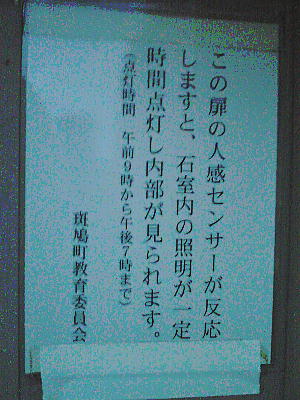 この扉の人感センサーが反応
しますと、石室内の照明が一定
時間点灯し内部が見られます。
（点灯時間　午前9時から午後7時まで）
斑鳩町教育委員会